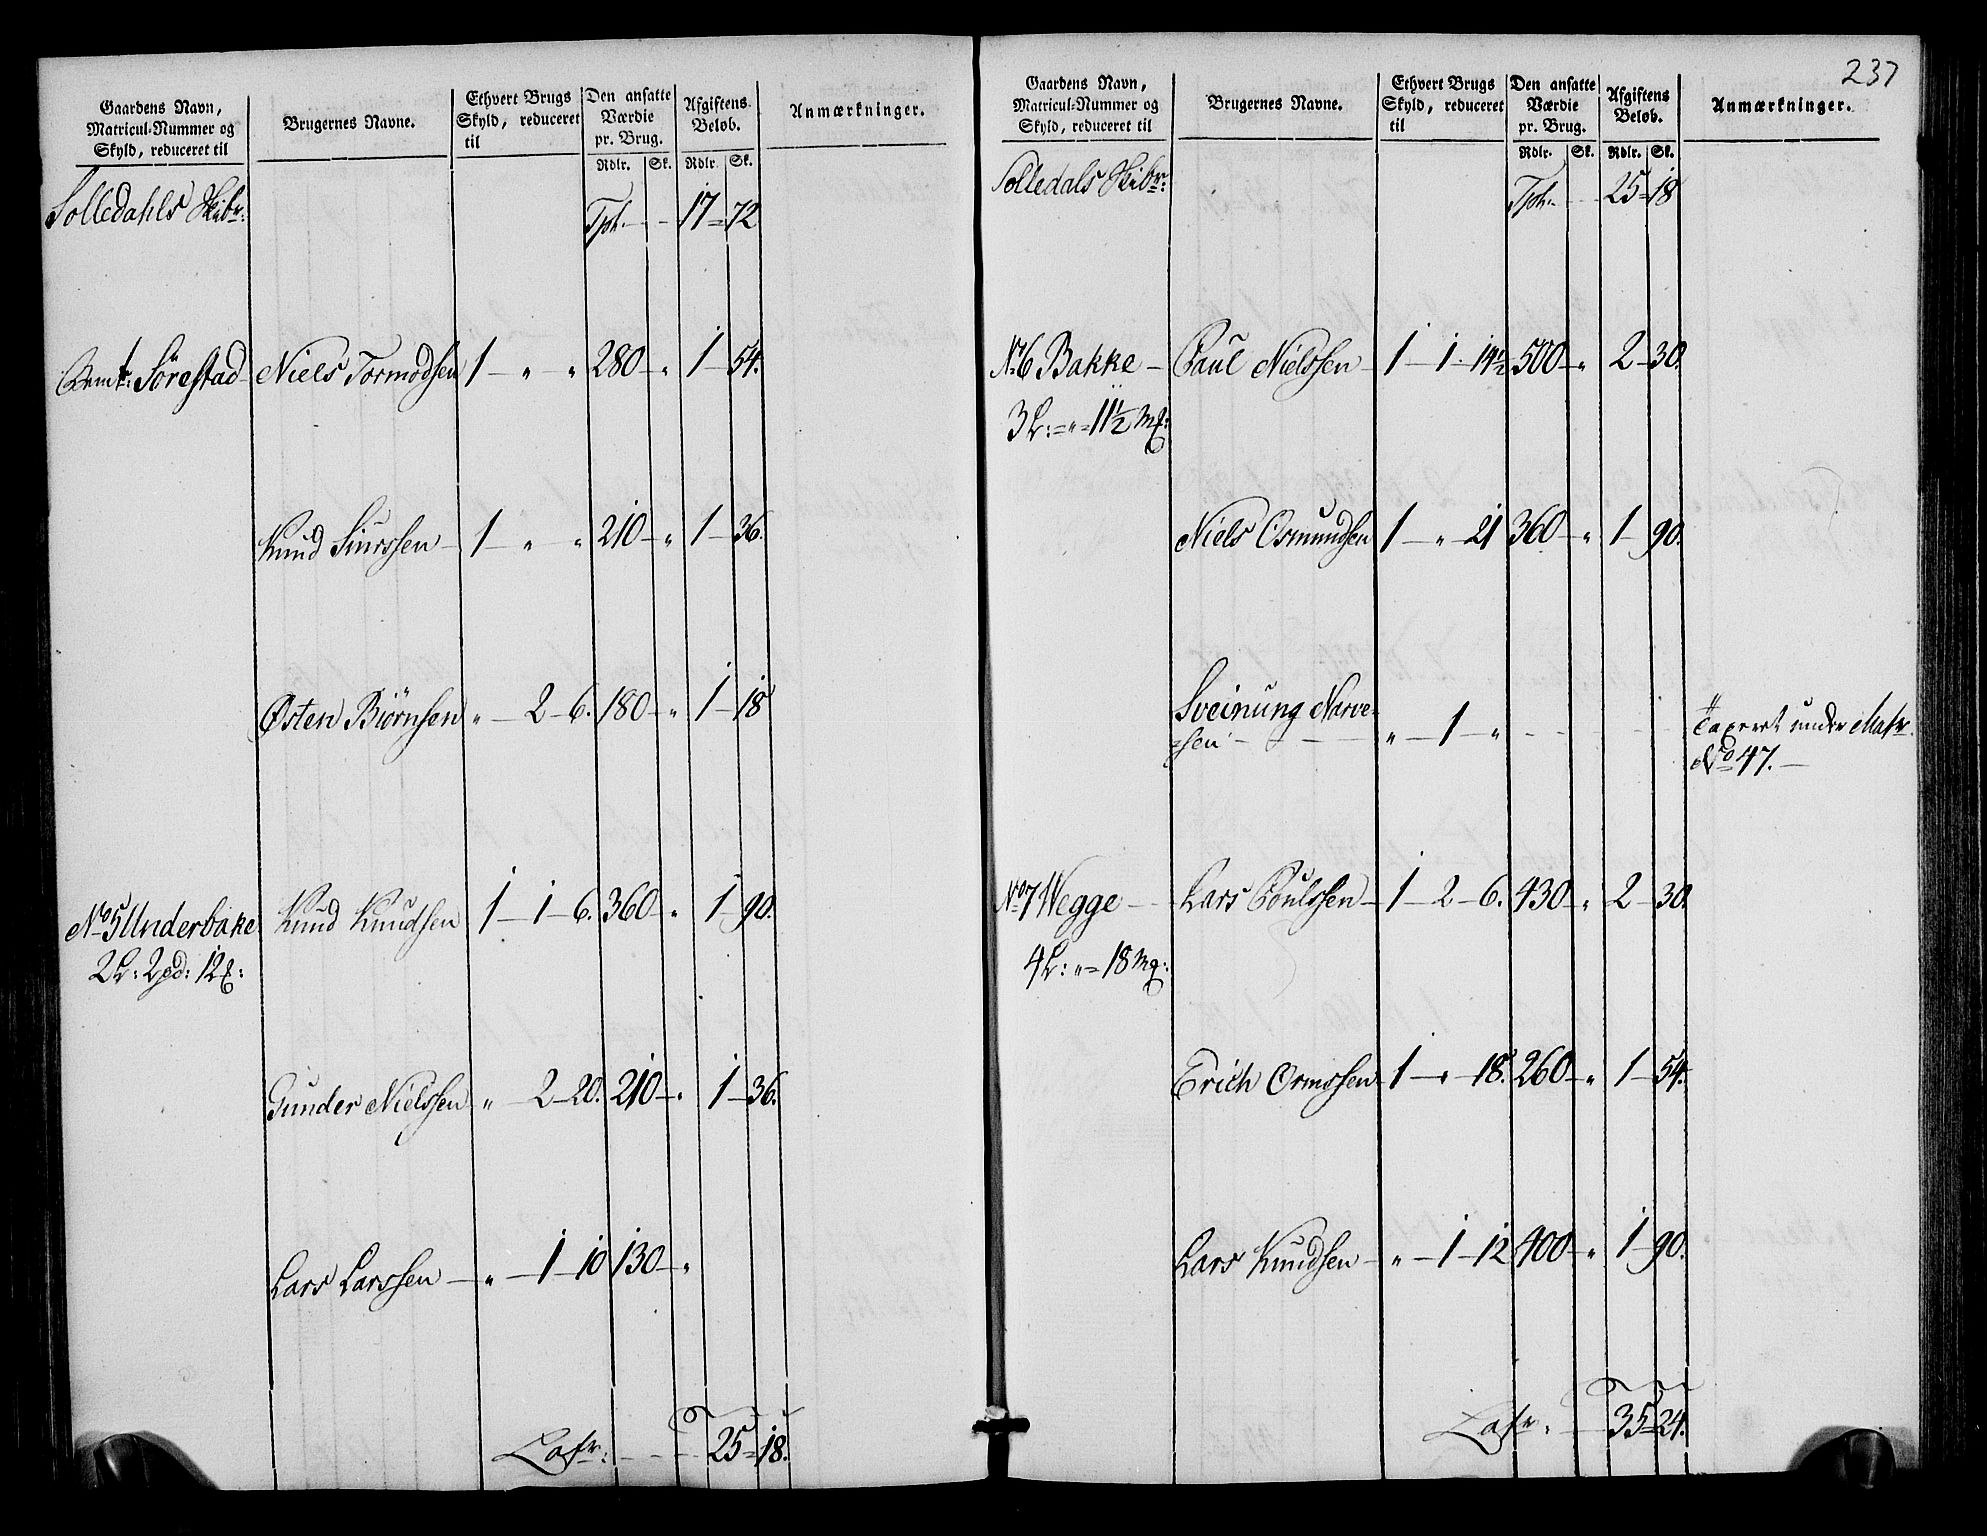 Gaardens Navn,
Matricul-Nummer og
Skyld, reduceret til
Brugernes Navne.
Ethvert Brugs
Skyld, reduceret
til
Den ansatte
Værdie
pr. Brug.
Rdlr. Sk.
Afgiftens
Beløb.
Rdlr. Sk.
Anmærkninger.
Solledahls Skibr:
Tpt. — 17 = 72
Sørestad Niels Tormodsen 1 — „ „ 280 — „ 1 — 54.
Knud Siurssen — 1 — „ „ 210 — „ 1 — 36.
Østen Biørnsen „ — 2 — 6. 180 — „ 1 — 18
No 5 Underbake Knud Knudsen 1 — 1 — 6. 360 — „ 1 — 90.
2 L: 2 pd: 12 
Gunder Nielssen „ — 2 — 20. 210 — „ 1 — 36.
Lars Larssen — „ — 1 — 10 130 — „
Lafr: — 25 = 18.
237
Gaardens Navn,
Matricul-Nummer og
Skyld, reduceret til
Brugernes Navne.
Ethvert Brugs
Skyld, reduceret
til
Den ansatte
Værdie
pr. Brug.
Rdlr. Sk.
Afgiftens
Beløb.
Rdlr. Sk.
Anmærkninger.
Solledals Skibr:
Tpt. — 25 = 18
No 6 Bakke — Paul Nielssen — 1 — 1 — 14½ 500 — „ 2 — 30.
3 L: = „ = 11½ Mk:
Niels Osmundsen 1 — „ — 21 360 — „ 1 — 90.
Sveinung Narve-
sen — „ — 1 — „ — Taxeret under Matr.
No 47. —
No 7 Wegge — Lars Poulssen — 1 — 2 — 6. 430 — „ 2 — 30.
4 L: „ = 18 Mk:
Erich Ormssen — 1 — „ — 18. 260 — „ 1 — 54.
Lars Knudsen — „ — 1 — 12 400 — „ 1 — 90.
Lafr. — 35 = 24.